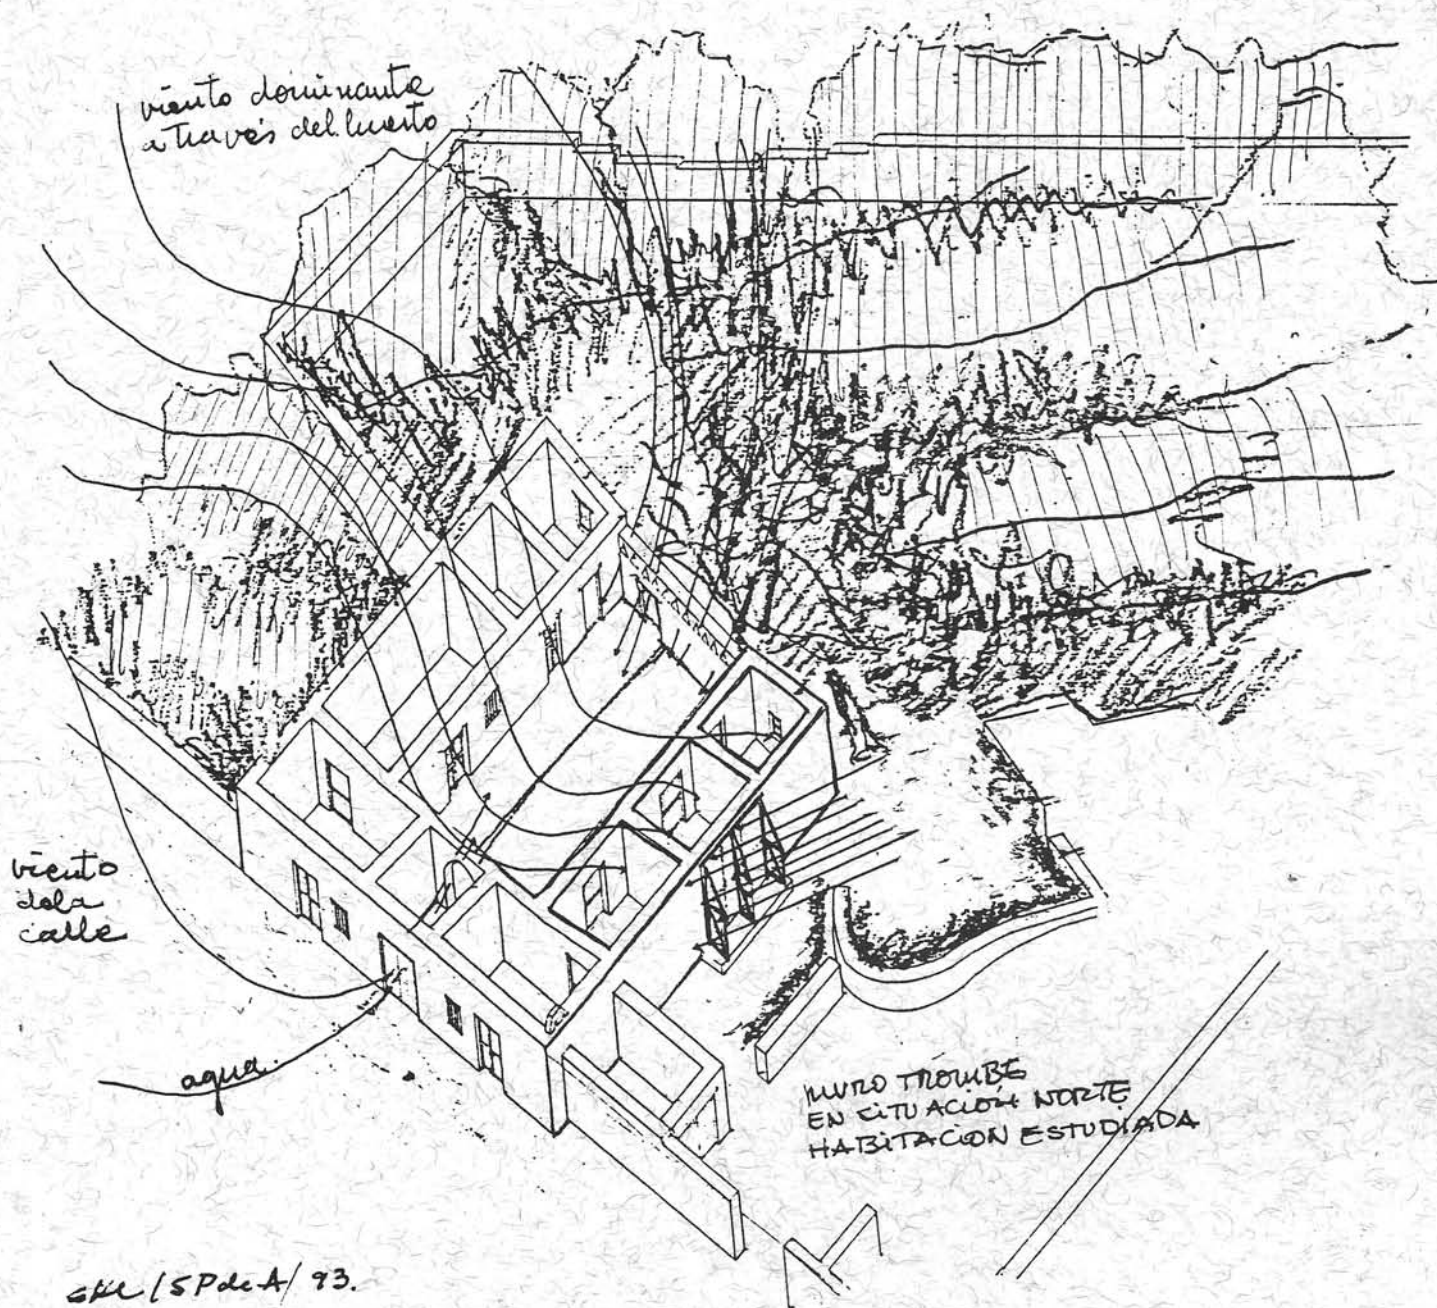 viento dominante
a través del huerto
viento
dela
calle
agua
MURO TROMBE
EN SITUACIÓN NORTE
HABITACION ESTUDIADA
/SP de A/ 93.